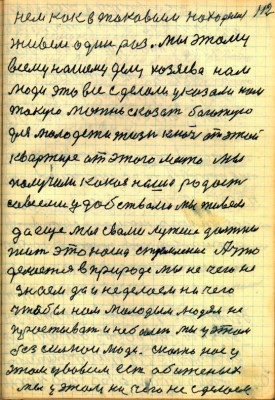 нем как в таковыим находим 112
живем один раз. мы этому
всему нашему делу хозяева нам
люди это все сделали указали нам
такую можно сказат большую
для молодежи жизн ключ от этой
квартире от этого мы
получили какая наша радост
совсеми удобствами мы живем
да еще мы с вами лучше должны
жит это наша стремление А что
делается в природе мы не чего не
знаем да и неделаем ни чего
чтобы нам молодым людям не
простыват и неболет мы у этом
безсилном люди. сколко нас у
этом обиженых
мы у этом ни чего не сделаем